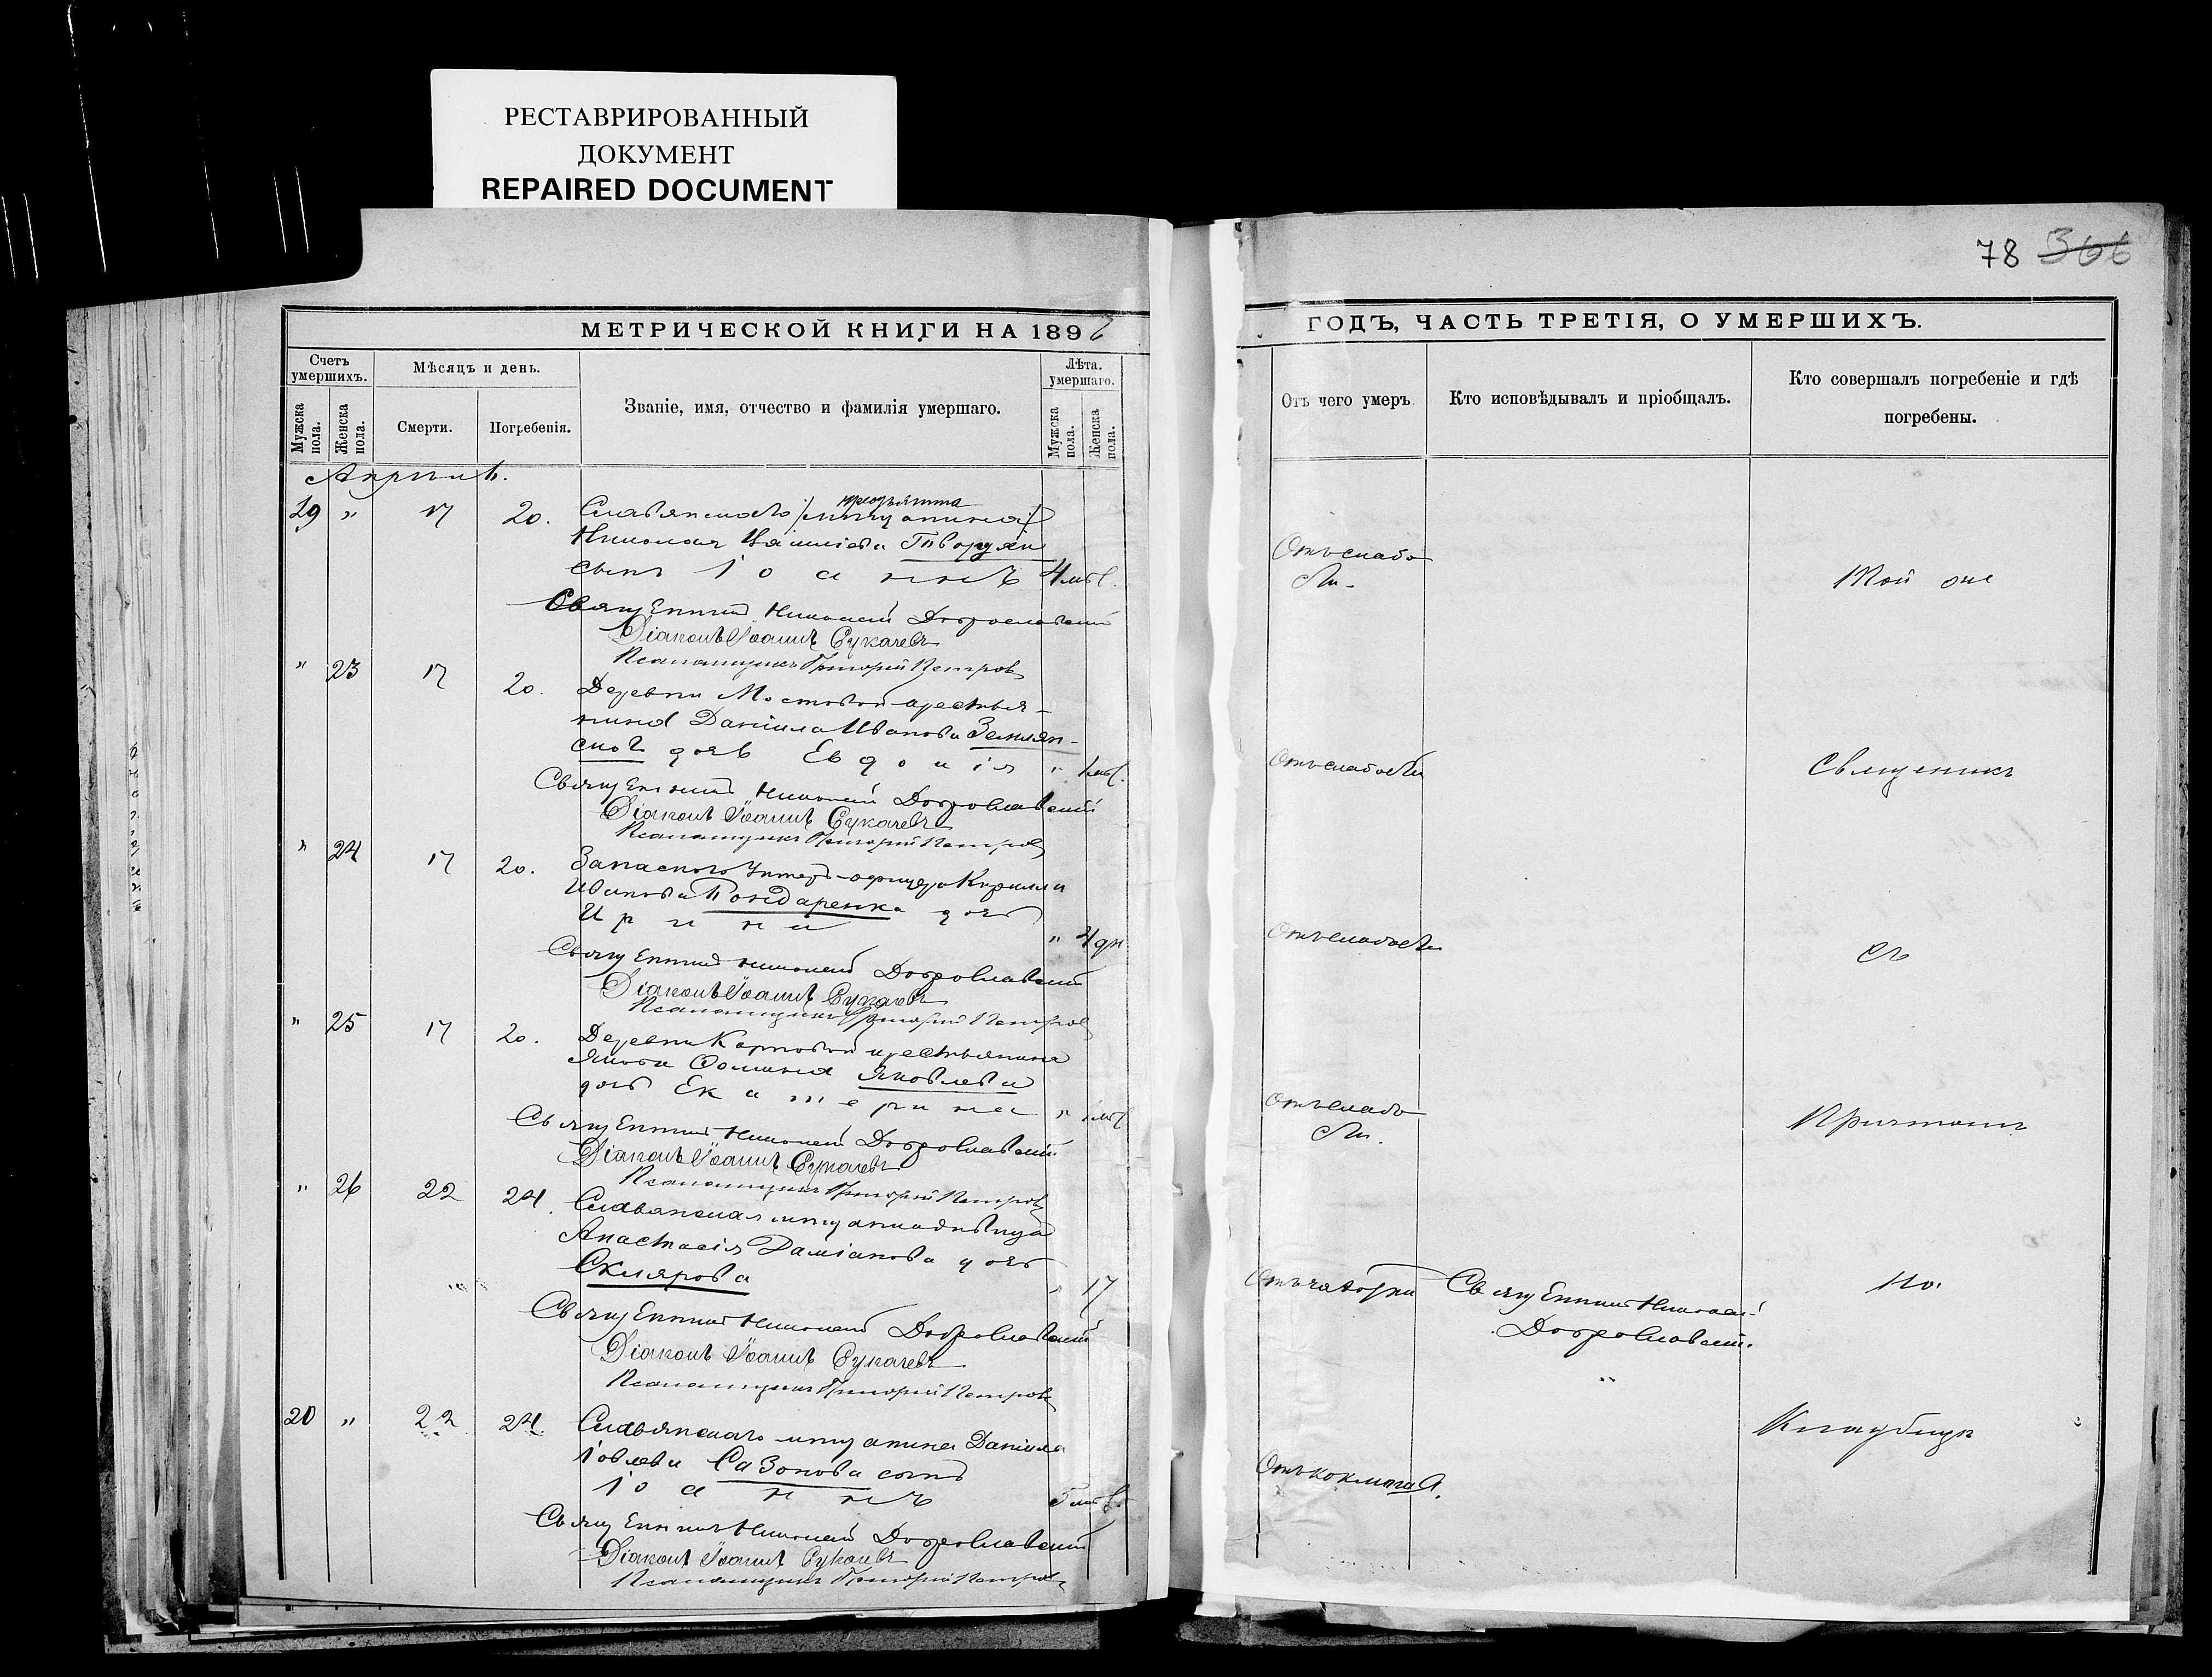 РЕСТАВРИРОВАННЫЙ
ДОКУМЕНТ
REPAIRED DOCUMENT
78 366
МЕТРИЧЕСКОЙ КНИГИ НА 1896
Счетъ умершихъ.
Мѣсяцъ и день.
Званіе, имя, отчество и фамилія умершаго.
Лѣта. умершаго.
Мужска пола.
Женска пола.
Смерти.
Погребенія.
Мужска пола.
Женска пола.
Апрѣль.
19 " 17 20. Славянскаго мѣщанина
Николая Гвордян
сынъ Іоаннъ 4 мѣс.
Священникъ Николай Доброславскій
Діаконъ Іоаннъ Сукачевъ
Псаломщикъ Григорій Петровъ
" 23 17 20. Деревни Мостовой крестья-
нина Даніила Иванова Землян-
ского дочь Евдокія " 1 мѣс.
Священникъ Николай Доброславскій
Діаконъ Іоаннъ Сукачевъ
Псаломщикъ Григорій Петровъ
" 24 17 20. Запаснаго Унтеръ-офицера Кирилла
Иванова Бондаренка дочь
Ирина " 4 дн.
Священникъ Николай Доброславскій
Діаконъ Іоаннъ Сукачевъ
Псаломщикъ Григорій Петровъ
" 25 17 20. Деревни Карповой крестьянина
Якова Фомина Яковлева
дочь Екатерина " 1 мѣс.
Священникъ Николай Доброславскій
Діаконъ Іоаннъ Сукачевъ
Псаломщикъ Григорій Петровъ
" 26 22 24. Славянская мѣщанка дѣвица
Анастасія Даміанова дочь
Склярова " 17
Священникъ Николай Доброславскій
Діаконъ Іоаннъ Сукачевъ
Псаломщикъ Григорій Петровъ
20 " 22 24. Славянскаго мѣщанина Даніила
Іовлева Сазонова сынъ
Іоаннъ 5 мѣс.
Священникъ Николай Доброславскій
Діаконъ Іоаннъ Сукачевъ
Псаломщикъ Григорій Петровъ
ГОДЪ, ЧАСТЬ ТРЕТІЯ, О УМЕРШИХЪ.
Отъ чего умеръ
Кто исповѣдывалъ и пріобщалъ.
Кто совершалъ погребеніе и гдѣ
погребены.
Отъ слабо
сти.
Той же
Отъ слабости
Священникъ
Отъ слабости
съ
Отъ слабо
сти.
Причтомъ
Отъ чахотки Священникъ Николай
Доброславскій.
на
Кладбищѣ
Отъ коклюша.